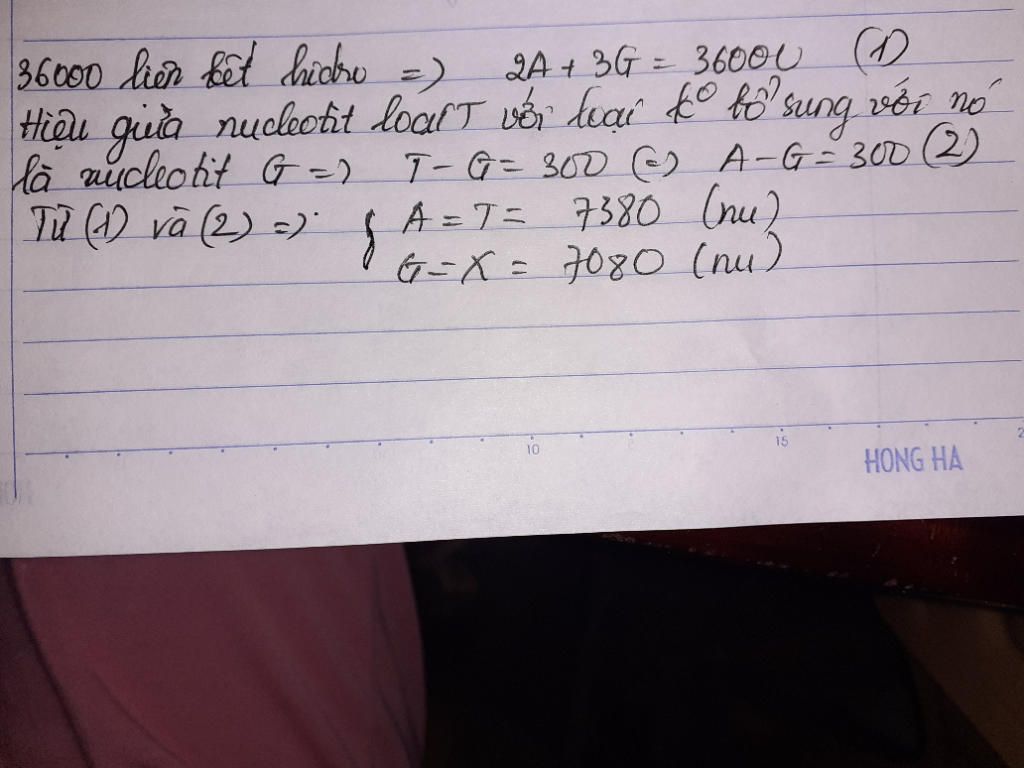 36000 liên kết hidro => 2A + 3G = 36000 (1)
Hiệu giữa nucleotit loại T với loại k° bổ sung với nó
là nucleotit G => T - G = 300 (=) A - G = 300 (2)
Từ (1) và (2) => { A = T = 7380 (nu)
G = X = 7080 (nu)
10
15
2
HONG HA